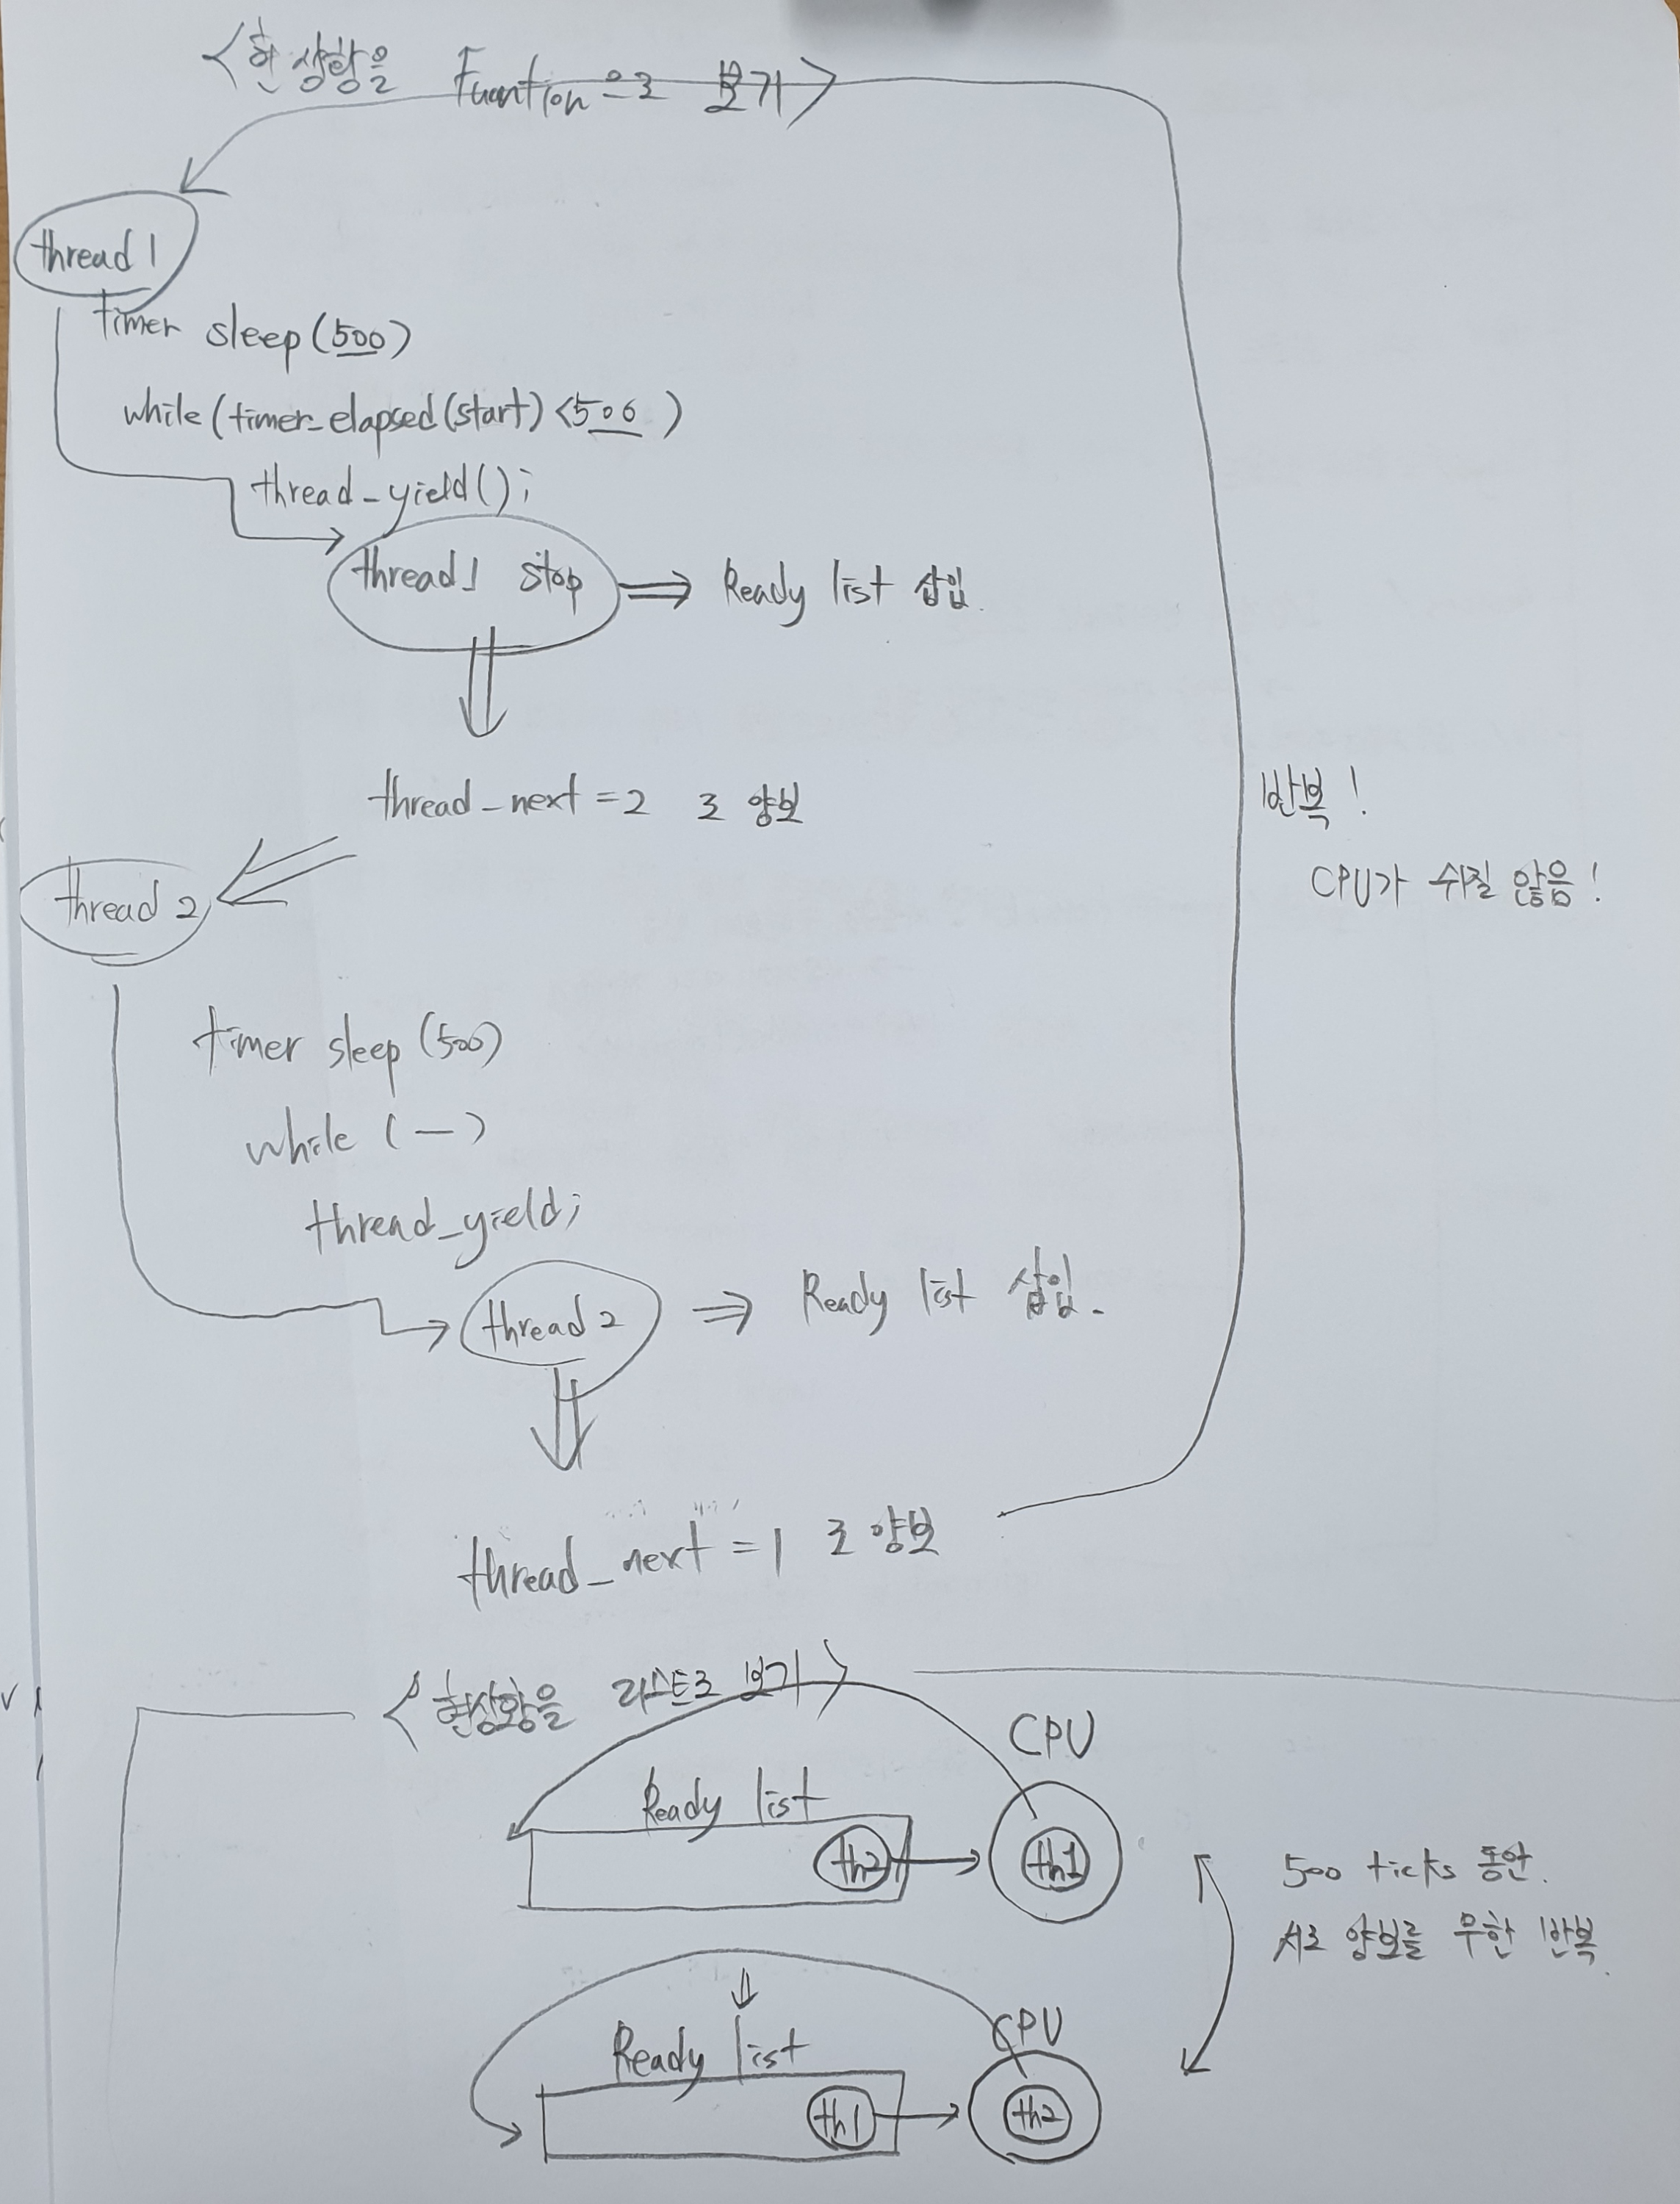 <현상황을 Fucntion으로 보기>
thread 1
timer sleep(500)
while(timer_elapsed(start)<500)
thread_yield();
thread1 stop ⇒ Ready list 삽입.
thread_next=2 로 양보
반복!
CPU가 쉬질 않음!
thread 2
timer sleep(500)
while (—)
thread_yield;
thread 2 ⇒ Ready list 삽입.
thread_next=1 로 양보
<현상황을 리스트로 보기>
CPU
Ready list
th2
th1
500 ticks 동안.
서로 양보를 무한 반복.
CPU
Ready list
th1
th2